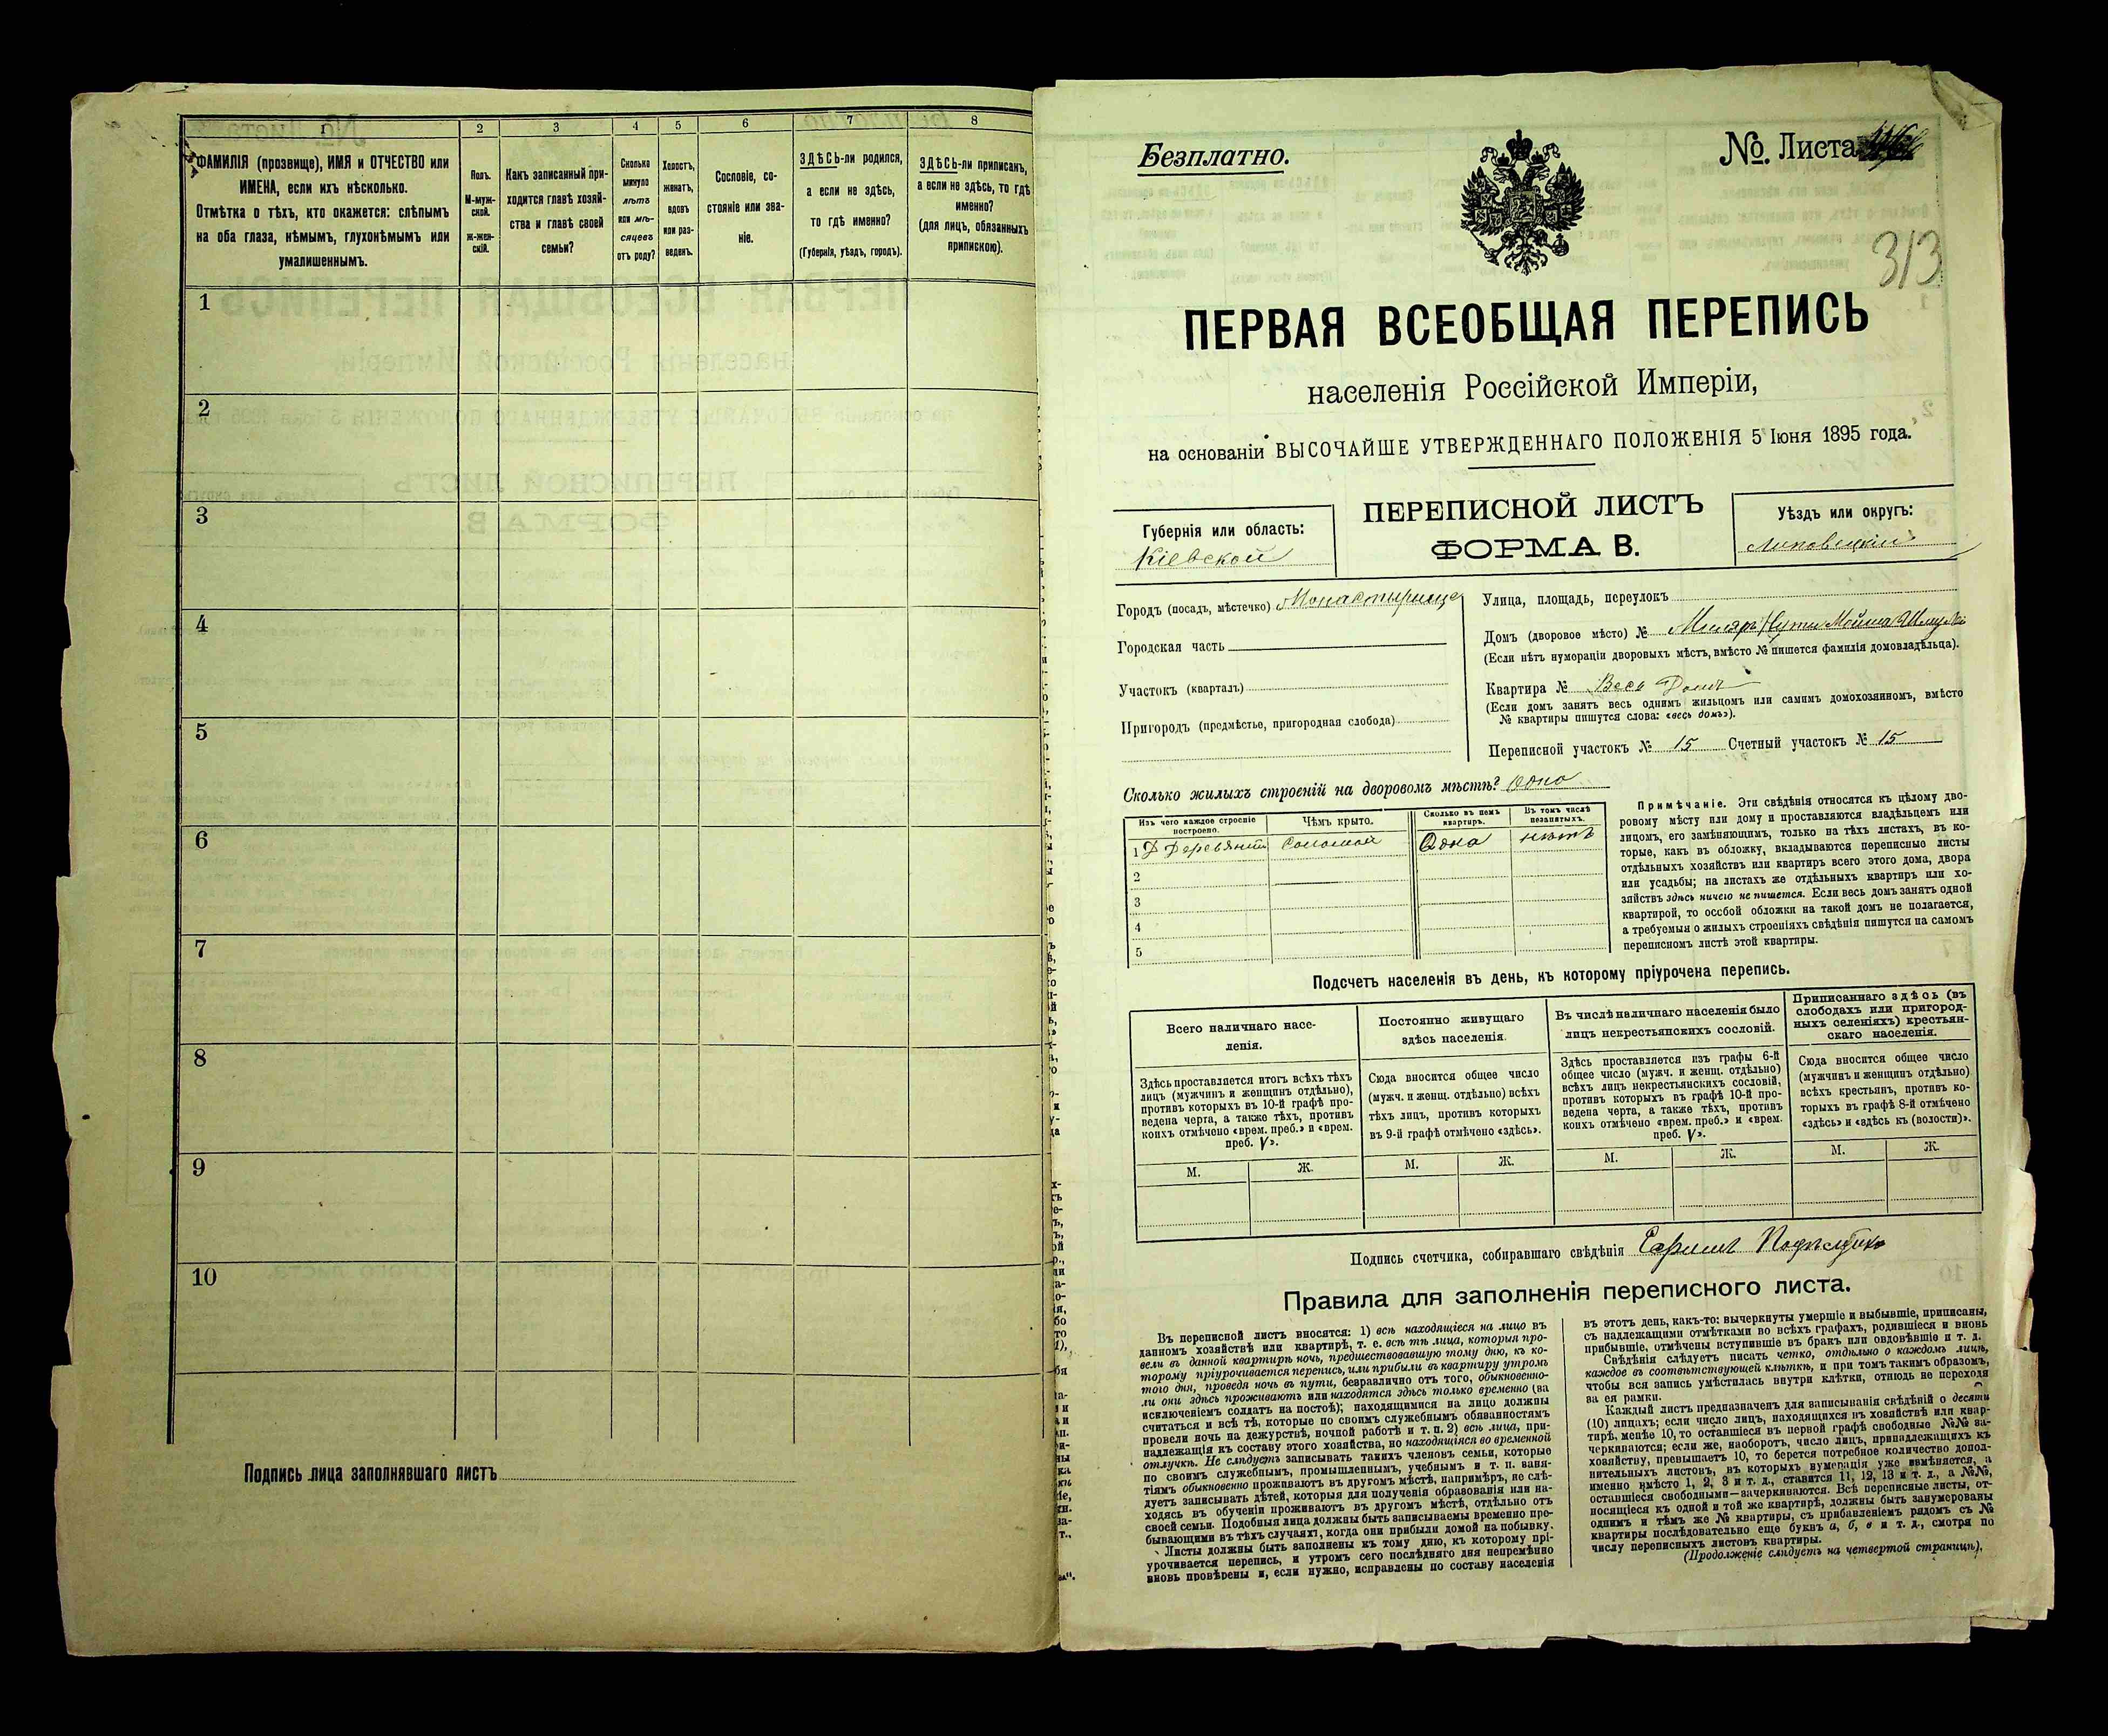 1
2
3
4
5
6
7
8
ФАМИЛІЯ (прозвище), ИМЯ и ОТЧЕСТВО или
ИМЕНА, если ихъ нѣсколько.
Отмѣтка о тѣхъ, кто окажется: слѣпымъ
на оба глаза, нѣмымъ, глухонѣмымъ или
умалишеннымъ.
Полъ.
М-муж-
ской.
ж-жен-
скій.
Какъ записанный при-
ходится главѣ хозяй-
ства и главѣ своей
семьи?
Сколько
минуло
лѣтъ
или мѣ-
сяцевъ
отъ роду?
Холостъ,
женатъ,
вдовъ
или раз-
веденъ.
Сословіе, со-
стояніе или зва-
ніе.
ЗДѢСЬ-ли родился,
а если не здѣсь,
то гдѣ именно?
(Губернія, уѣздъ, городъ).
ЗДѢСЬ-ли приписанъ,
а если не здѣсь, то гдѣ
именно?
(для лицъ, обязанныхъ
припискою).
1
2
3
4
5
6
7
8
9
10
Подпись лица заполнявшаго листъ
Безплатно.
№. Листа
313
ПЕРВАЯ ВСЕОБЩАЯ ПЕРЕПИСЬ
населенія Россійской Имперіи,
на основаніи ВЫСОЧАЙШЕ УТВЕРЖДЕННАГО ПОЛОЖЕНІЯ 5 Іюня 1895 года.
Губернія или область:
Кіевской
ПЕРЕПИСНОЙ ЛИСТЪ
ФОРМА В.
Уѣздъ или округъ:
Липовецкій
Городъ (посадъ, мѣстечко) Монастырище
Городская часть
Участокъ (кварталъ)
Пригородъ (предмѣстье, пригородная слобода)
Улица, площадь, переулокъ
Домъ (дворовое мѣсто) №
(Если нѣтъ нумераціи дворовыхъ мѣстъ, вмѣсто № пишется фамилія домовладѣльца).
Квартира № Весь Домъ
(Если домъ занятъ весь однимъ жильцомъ или самимъ домохозяиномъ, вмѣсто
№ квартиры пишутся слова: «весь домъ»).
Переписной участокъ № 15 Счетный участокъ № 15
Сколько жилыхъ строеній на дворовомъ мѣстѣ? Одно
Изъ чего каждое строеніе
построено.
Чѣмъ крыто.
Сколько въ немъ
квартиръ.
Въ томъ числѣ
незанятыхъ.
1 Соломой Одна нѣтъ
2
3
4
5
Примѣчаніе. Эти свѣдѣнія относятся къ цѣлому дво-
ровому мѣсту или дому и проставляются владѣльцемъ или
лицомъ, его замѣняющимъ, только на тѣхъ листахъ, въ ко-
торые, какъ въ обложку, вкладываются переписные листы
отдѣльныхъ хозяйствъ или квартиръ всего этого дома, двора
или усадьбы; на листахъ же отдѣльныхъ квартиръ или хо-
зяйствъ здѣсь ничего не пишется. Если весь домъ занятъ одной
квартирой, то особой обложки на такой домъ не полагается,
а требуемыя о жилыхъ строеніяхъ свѣдѣнія пишутся на самомъ
переписномъ листѣ этой квартиры.
Подсчетъ населенія въ день, къ которому пріурочена перепись.
Всего наличнаго насе-
ленія.
Постоянно живущаго
здѣсь населенія.
Въ числѣ наличнаго населенія было
лицъ некрестьянскихъ сословій.
Приписаннаго здѣсь (въ
слободахъ или пригород-
ныхъ селеніяхъ) крестьян-
скаго населенія.
Здѣсь проставляется итогъ всѣхъ тѣхъ
лицъ (мужчинъ и женщинъ отдѣльно),
противъ которыхъ въ 10-й графѣ про-
ведена черта, а также тѣхъ, противъ
коихъ отмѣчено «врем. преб.» и «врем.
преб. V».
Сюда вносится общее число
(мужч. и женщ. отдѣльно) всѣхъ
тѣхъ лицъ, противъ которыхъ
въ 9-й графѣ отмѣчено «здѣсь».
Здѣсь проставляется изъ графы 6-й
общее число (мужч. и женщ. отдѣльно)
всѣхъ лицъ некрестьянскихъ сословій,
противъ которыхъ въ графѣ 10-й про-
ведена черта, а также тѣхъ, противъ
коихъ отмѣчено «врем. преб.» и «врем.
преб. V».
Сюда вносится общее число
(мужчинъ и женщинъ отдѣльно)
всѣхъ крестьянъ, противъ ко-
торыхъ въ графѣ 8-й отмѣчено
«здѣсь» и «здѣсь къ (волости)».
М. Ж. М. Ж. М. Ж. М. Ж.
Подпись счетчика, собиравшаго свѣдѣнія
Правила для заполненія переписного листа.
Въ переписной листъ вносятся: 1) всѣ находящіеся на лицо въ
данномъ хозяйствѣ или квартирѣ, т. е. всѣ тѣ лица, которыя про-
вели въ данной квартирѣ ночь, предшествовавшую тому дню, къ ко-
торому пріурочивается перепись, или прибыли въ квартиру утромъ
того дня, проведя ночь въ пути, безразлично отъ того, обыкновенно-
ли они здѣсь проживаютъ или находятся здѣсь только временно (за
исключеніемъ солдатъ на постоѣ); находящимися на лицо должны
считаться и всѣ тѣ, которые по своимъ служебнымъ обязанностямъ
провели ночь на дежурствѣ, ночной работѣ и т. п. 2) всѣ лица, при-
надлежащія къ составу этого хозяйства, но находящіяся во временной
отлучкѣ. Не слѣдуетъ записывать такихъ членовъ семьи, которые
по своимъ служебнымъ, промышленнымъ, учебнымъ и т. п. заня-
тіямъ обыкновенно проживаютъ въ другомъ мѣстѣ, напримѣръ, не слѣ-
дуетъ записывать дѣтей, которыя для полученія образованія или на-
ходясь въ обученіи проживаютъ въ другомъ мѣстѣ, отдѣльно отъ
своей семьи. Подобныя лица должны быть записываемы временно пре-
бывающими въ тѣхъ случаяхъ, когда они прибыли домой на побывку.
Листы должны быть заполнены къ тому дню, къ которому прі-
урочивается перепись, и утромъ сего послѣдняго дня непремѣнно
вновь провѣрены и, если нужно, исправлены по составу населенія
въ этотъ день, какъ-то: вычеркнуты умершіе и выбывшіе, приписаны,
съ надлежащими отмѣтками во всѣхъ графахъ, родившіеся и вновь
прибывшіе, отмѣчены вступившіе въ бракъ или овдовѣвшіе и т. д.
Свѣдѣнія слѣдуетъ писать четко, отдѣльно о каждомъ лицѣ,
каждое въ соотвѣтствующей клѣткѣ, и при томъ такимъ образомъ,
чтобы вся запись умѣстилась внутри клѣтки, отнюдь не переходя
за ея рамки.
Каждый листъ предназначенъ для записыванія свѣдѣній о десяти
(10) лицахъ; если число лицъ, находящихся въ хозяйствѣ или квар-
тирѣ, менѣе 10, то оставшіеся въ первой графѣ свободные №№ за-
черкиваются; если же, наоборотъ, число лицъ, принадлежащихъ къ
хозяйству, превышаетъ 10, то берется потребное количество допол-
нительныхъ листовъ, въ которыхъ нумерація уже измѣняется, а
именно вмѣсто 1, 2, 3 и т. д., ставится 11, 12, 13 и т. д., а №№,
оставшіеся свободными—зачеркиваются. Всѣ переписные листы, от-
носящіеся къ одной и той же квартирѣ, должны быть занумерованы
однимъ и тѣмъ же № квартиры, съ прибавленіемъ рядомъ съ №
квартиры послѣдовательно еще буквъ а, б, в и т. д., смотря по
числу переписныхъ листовъ квартиры.
(Продолженіе слѣдуетъ на четвертой страницѣ).